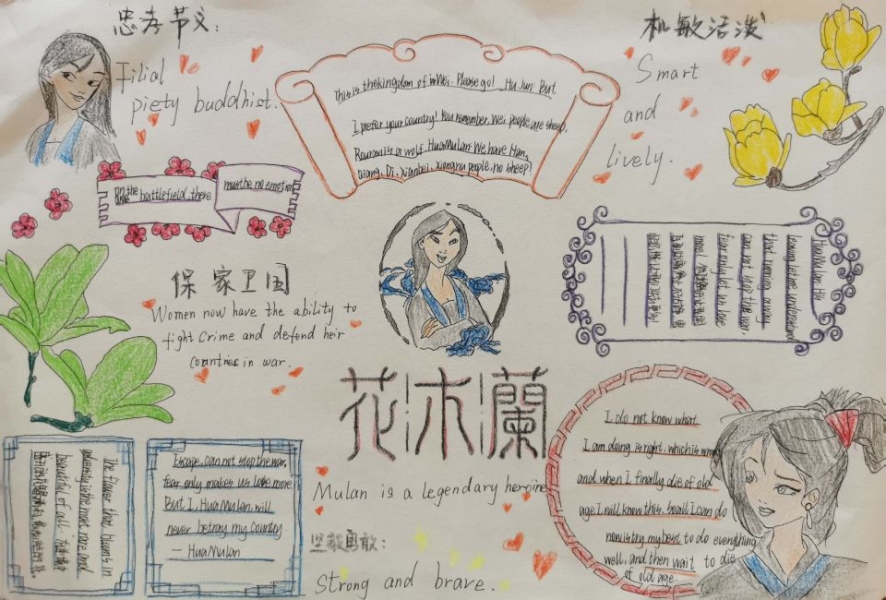 忠孝节义:
Filial
piety buddhist.
This is the kingdom of
Wei. Please go! Hu Jun. But
I prefer your country! You remember, Wei people are sheep,
Rouran is a wolf. HuaMulan: We have Han,
Qiang, Di, Xianbei, xiongnu people, no sheep!
机敏活泼
Smart
and
lively.
on the battlefield, there
must be no emotion
保家卫国
Women now have the ability to
fight crime and defend heir
countries in war.
花木蘭
Mulan is a legendary heroine
坚毅勇敢:
Strong and brave.
leaving let me understand
that running away
can not stop the war,
fear only let in lose
more!
The flower that blooms in
adversity is the most rare and
beautiful of all.
Escape, can not stop the war,
fear only makes us lose more
But I, HuaMulan, will
never betray my country
— HuaMulan
I do not know what
I am doing is right, which is wrong
and when I finally die of old
age, I will know this. So all I can do
now is try my best to do everything
well, and then wait to die
of old age